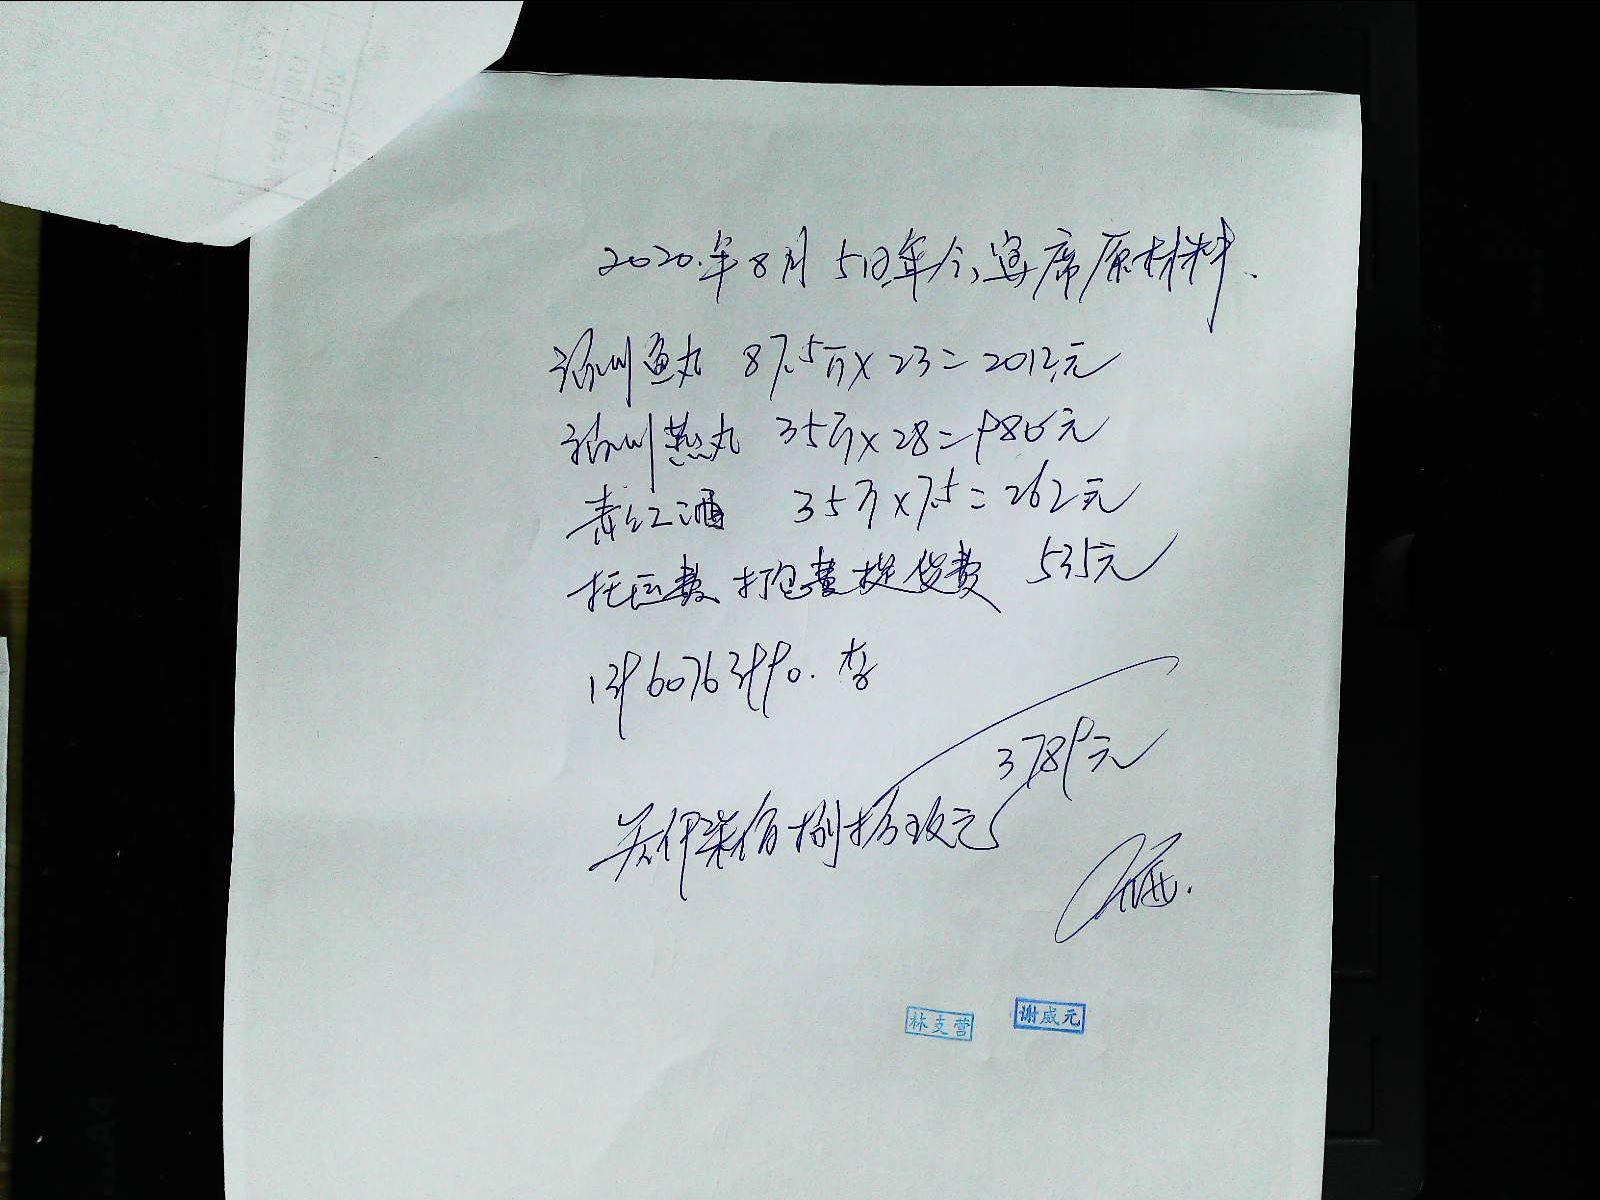 2020.年8月5日年会宴席原材料.
福州鱼丸 87.5斤×23=2012元
福州燕丸 35斤×28=980元
青红酒 35斤×7.5=262元
托运费、打包费提货费 535元
13960763990. 李
3789元
叁仟柒佰捌拾玖元
林支营 谢威元